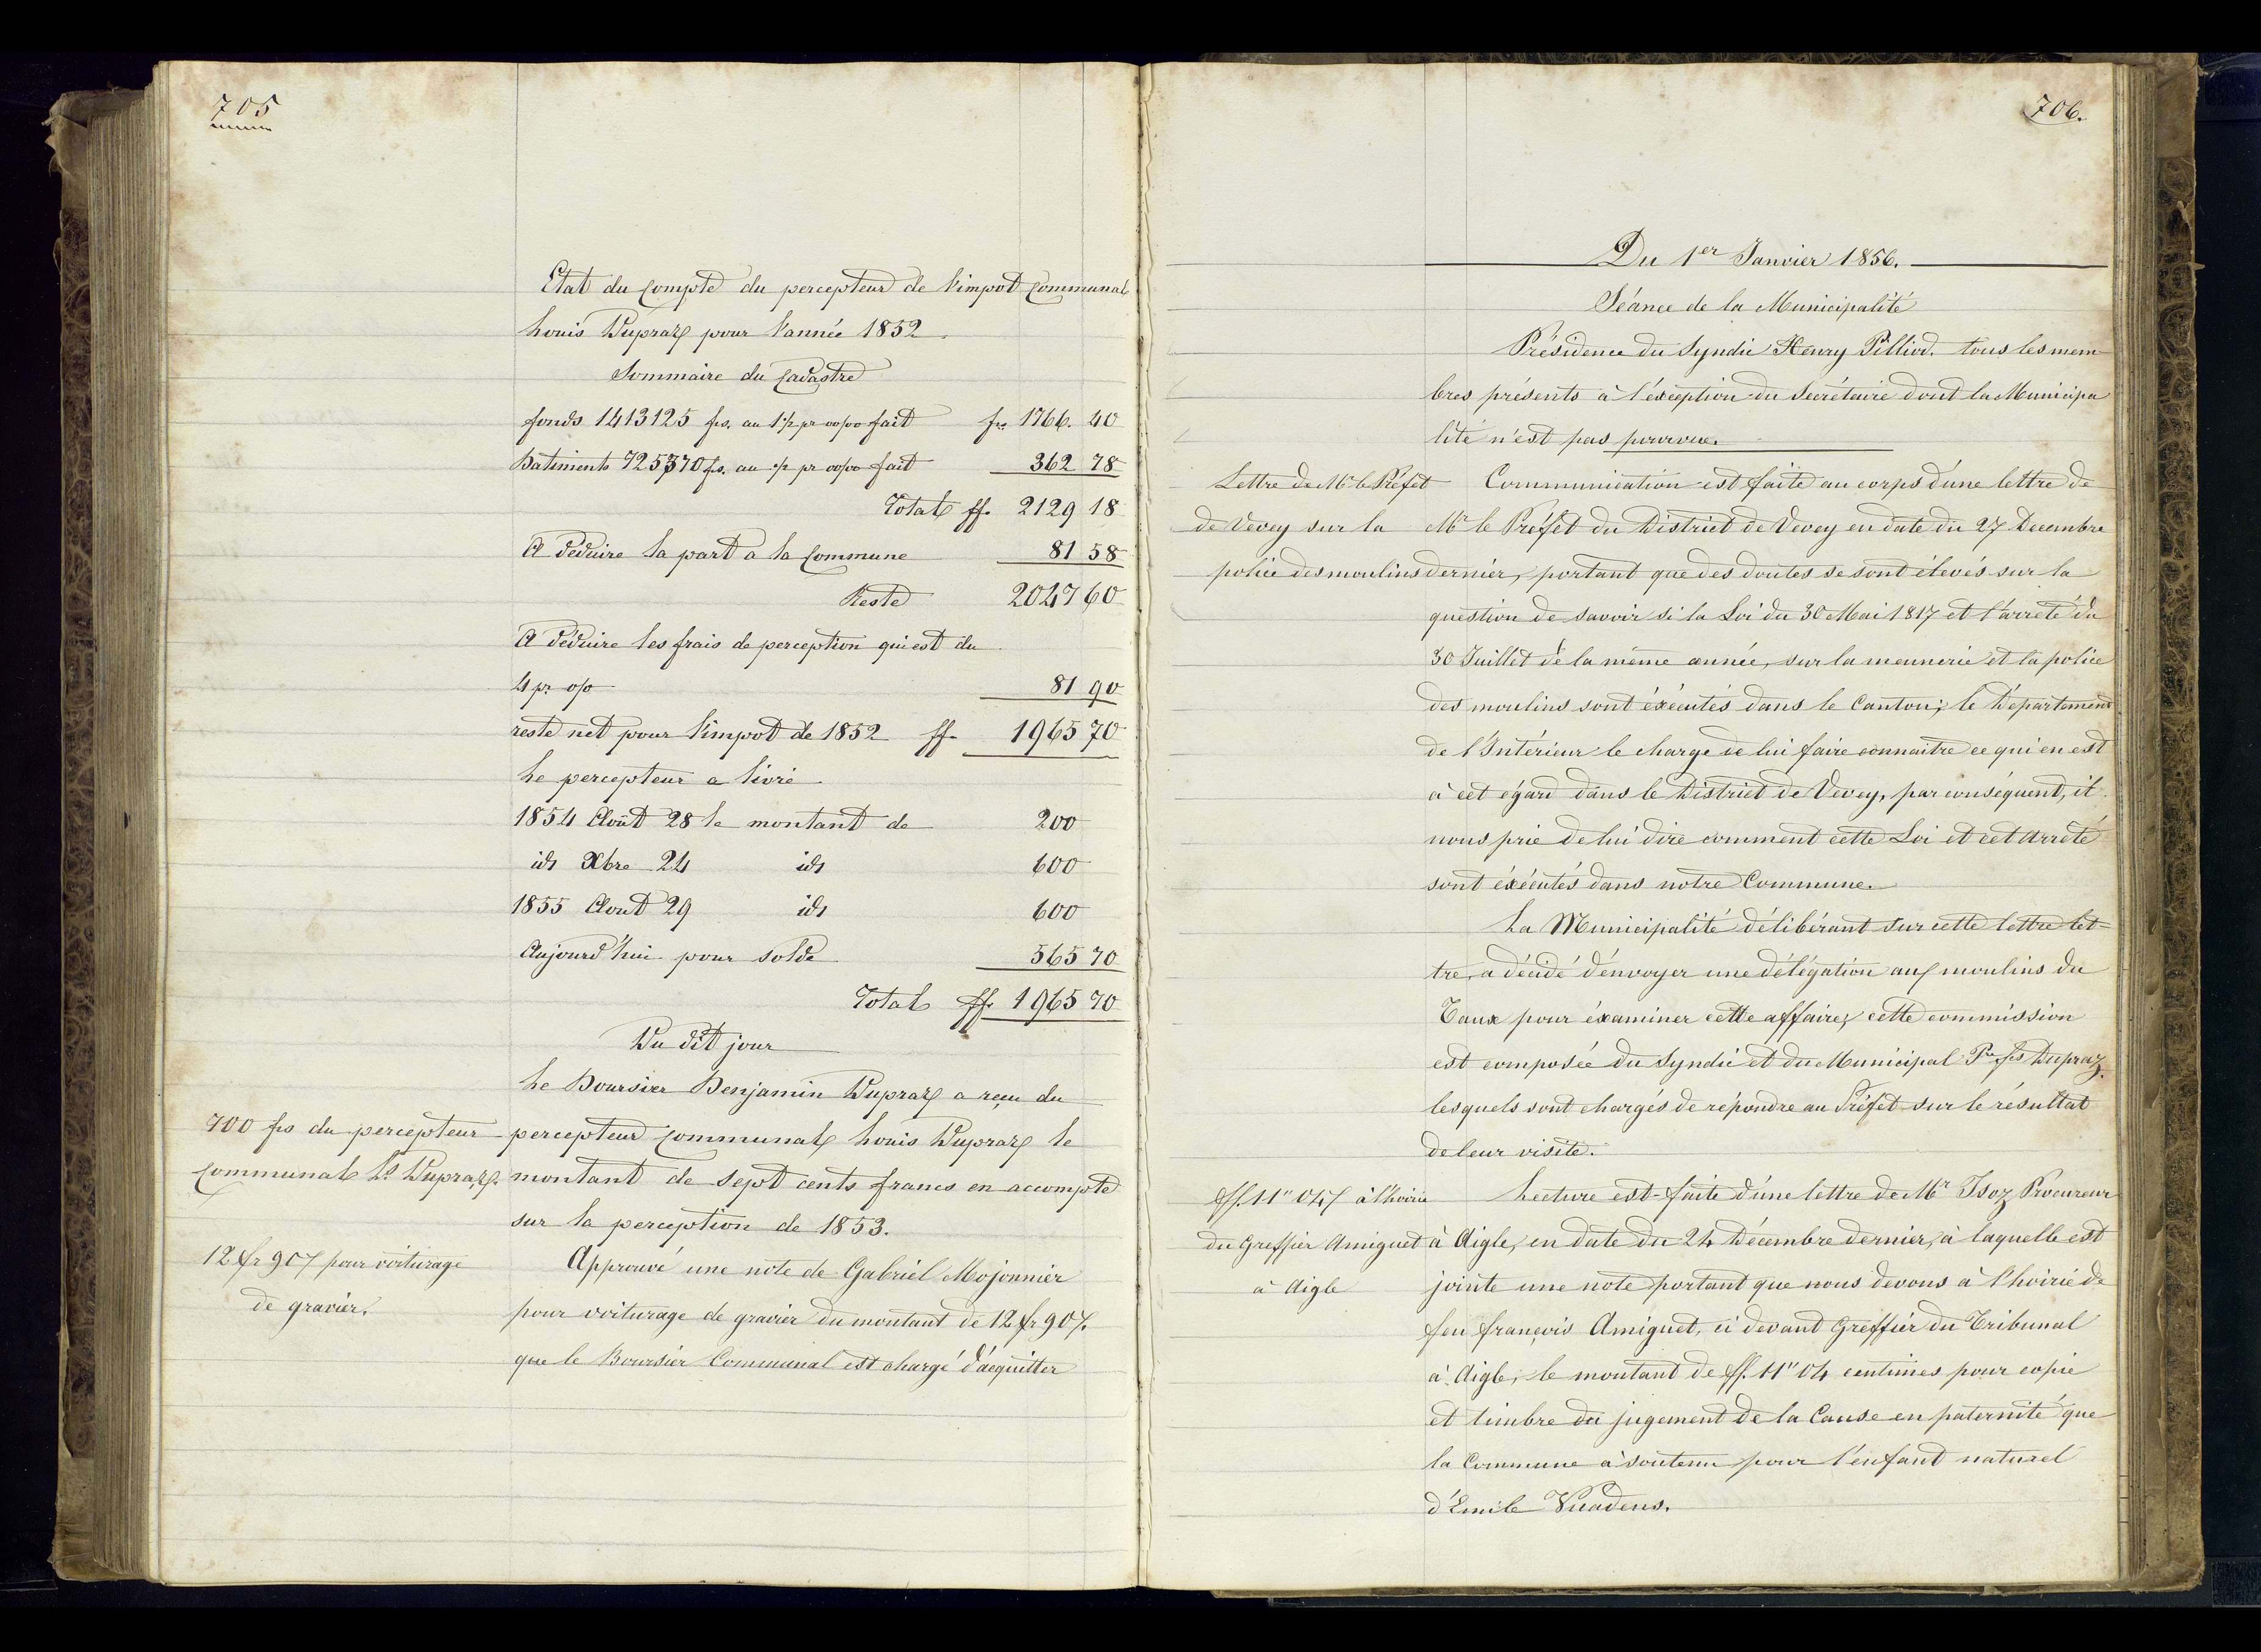 705
Etat du compte du percepteur de l'impot communal
Louis Dupraz pour l'année 1852.
Sommaire du cadastre
fonds 1413125 frs. au 1¼ pr 00/00 fait frs 1766. 40
Batiments 725570 fs. au ½ pr 00/00 fait 362 78
Total ff. 2129 18
A déduire la part a la commune 81 58
Reste 2047 60
A déduire les frais de perception qui est du
4 pr o/o 81 90
reste net pour l'impot de 1852 ff. 1965 70
Le percepteur a livré
1854 Août 28 le montant de 200
id. Xbre 24 id. 600
1855 Aout 29 id. 600
Aujourd'hui pour solde 565 70
Total ff. 1965 70
Du dit jour
Le Boursier Benjamin Dupraz a reçu du
700 frs du percepteur
communal Ls Dupraz.
percepteur communal Louis Dupraz le
montant de sept cents francs en accompte
sur la perception de 1853.
12 fr 90 c/ pour voiturage
de gravier.
Approuvé une note de Gabriel Mojonnier
pour voiturage de gravier du montant de 12 fr 90 c/.
que le Boursier Communal est chargé d'acquitter
706.
Du 1er Janvier 1856.
Séance de la Municipalité
Présidence du Syndic Henry Pilliod. tous les mem-
bres présents à l'éxception du Secrétaire dont la Municipa
lité n'est pas pourvue.
Lettre de Mr le Préfet
de Vevey sur la
police des moulins
Communication est faite au corps d'une lettre de
Mr le Préfet du District de Vevey en date du 27 Decembre
dernier, portant que des doutes se sont élevés sur la
question de savoir si la Loi du 30 Mai 1817 et l'arrêté du
30 Juillet de la même année, sur la meunerie et la police
des moulins sont éxécutés dans le Canton; le Département
de l'Intérieur le charge de lui faire connaitre ce qui en est
à cet égard dans le District de Vevey, par conséquent, il
nous prie de lui dire comment cette Loi et cet arrêté
sont éxécutés dans notre Commune.
La Municipalité délibérant sur cette lettre let-
tre, a décidé d'envoyer une délégation aux moulins du
Taux pour éxaminer cette affaire; cette commission
est composée du Syndic et du Municipal Pre fs Dupraz.
lesquels sont chargés de répondre au Préfet sur le résultat
de leur visite.
ff. 11" 04 c/ à l'hoirie
du Greffier Amiguet
à Aigle
Lecture est faite d'une lettre de Mr Isoz Procureur
à Aigle, en date du 24 Décembre dernier, à laquelle est
jointe une note portant que nous devons à l'hoirie de
feu françois Amiguet, ci devant Greffier du Tribunal
à Aigle, le montant de ff. 11" 04 centimes pour copie
et timbre du jugement de la Cause en paternité que
la Commune à soutenu pour l'enfant naturel
d'Emile Vuadens.